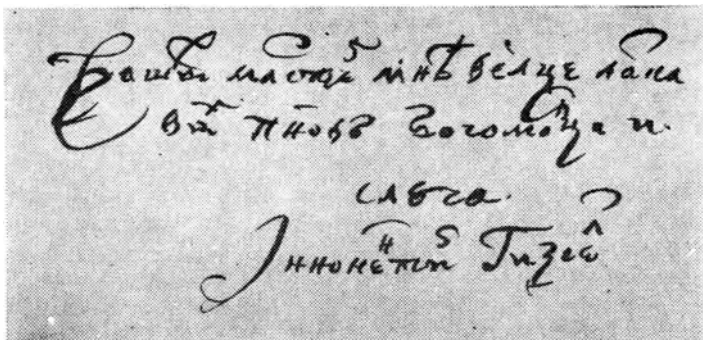 Вашых мл͠стей мнѣ велце ласка
вых п͠новъ богомолца и.
слуга.
Іннокентий Гизел